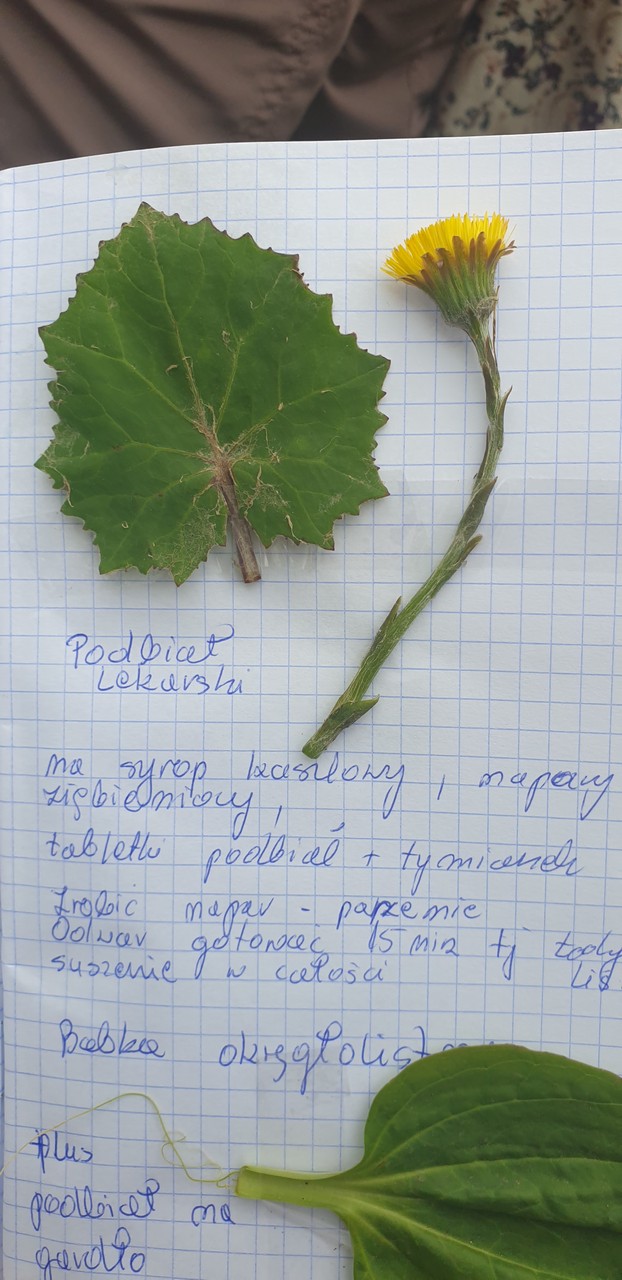 Podbiał
Lekarski
na syrop kaszlowy, napary
ziębieniowy,
tabletki podbiał + tymianek
Zrobić napar - parzenie
Odwar gotować 15 min tj
suszenie w całości
Babka okrągłolist
plus
podbiał na
gardło